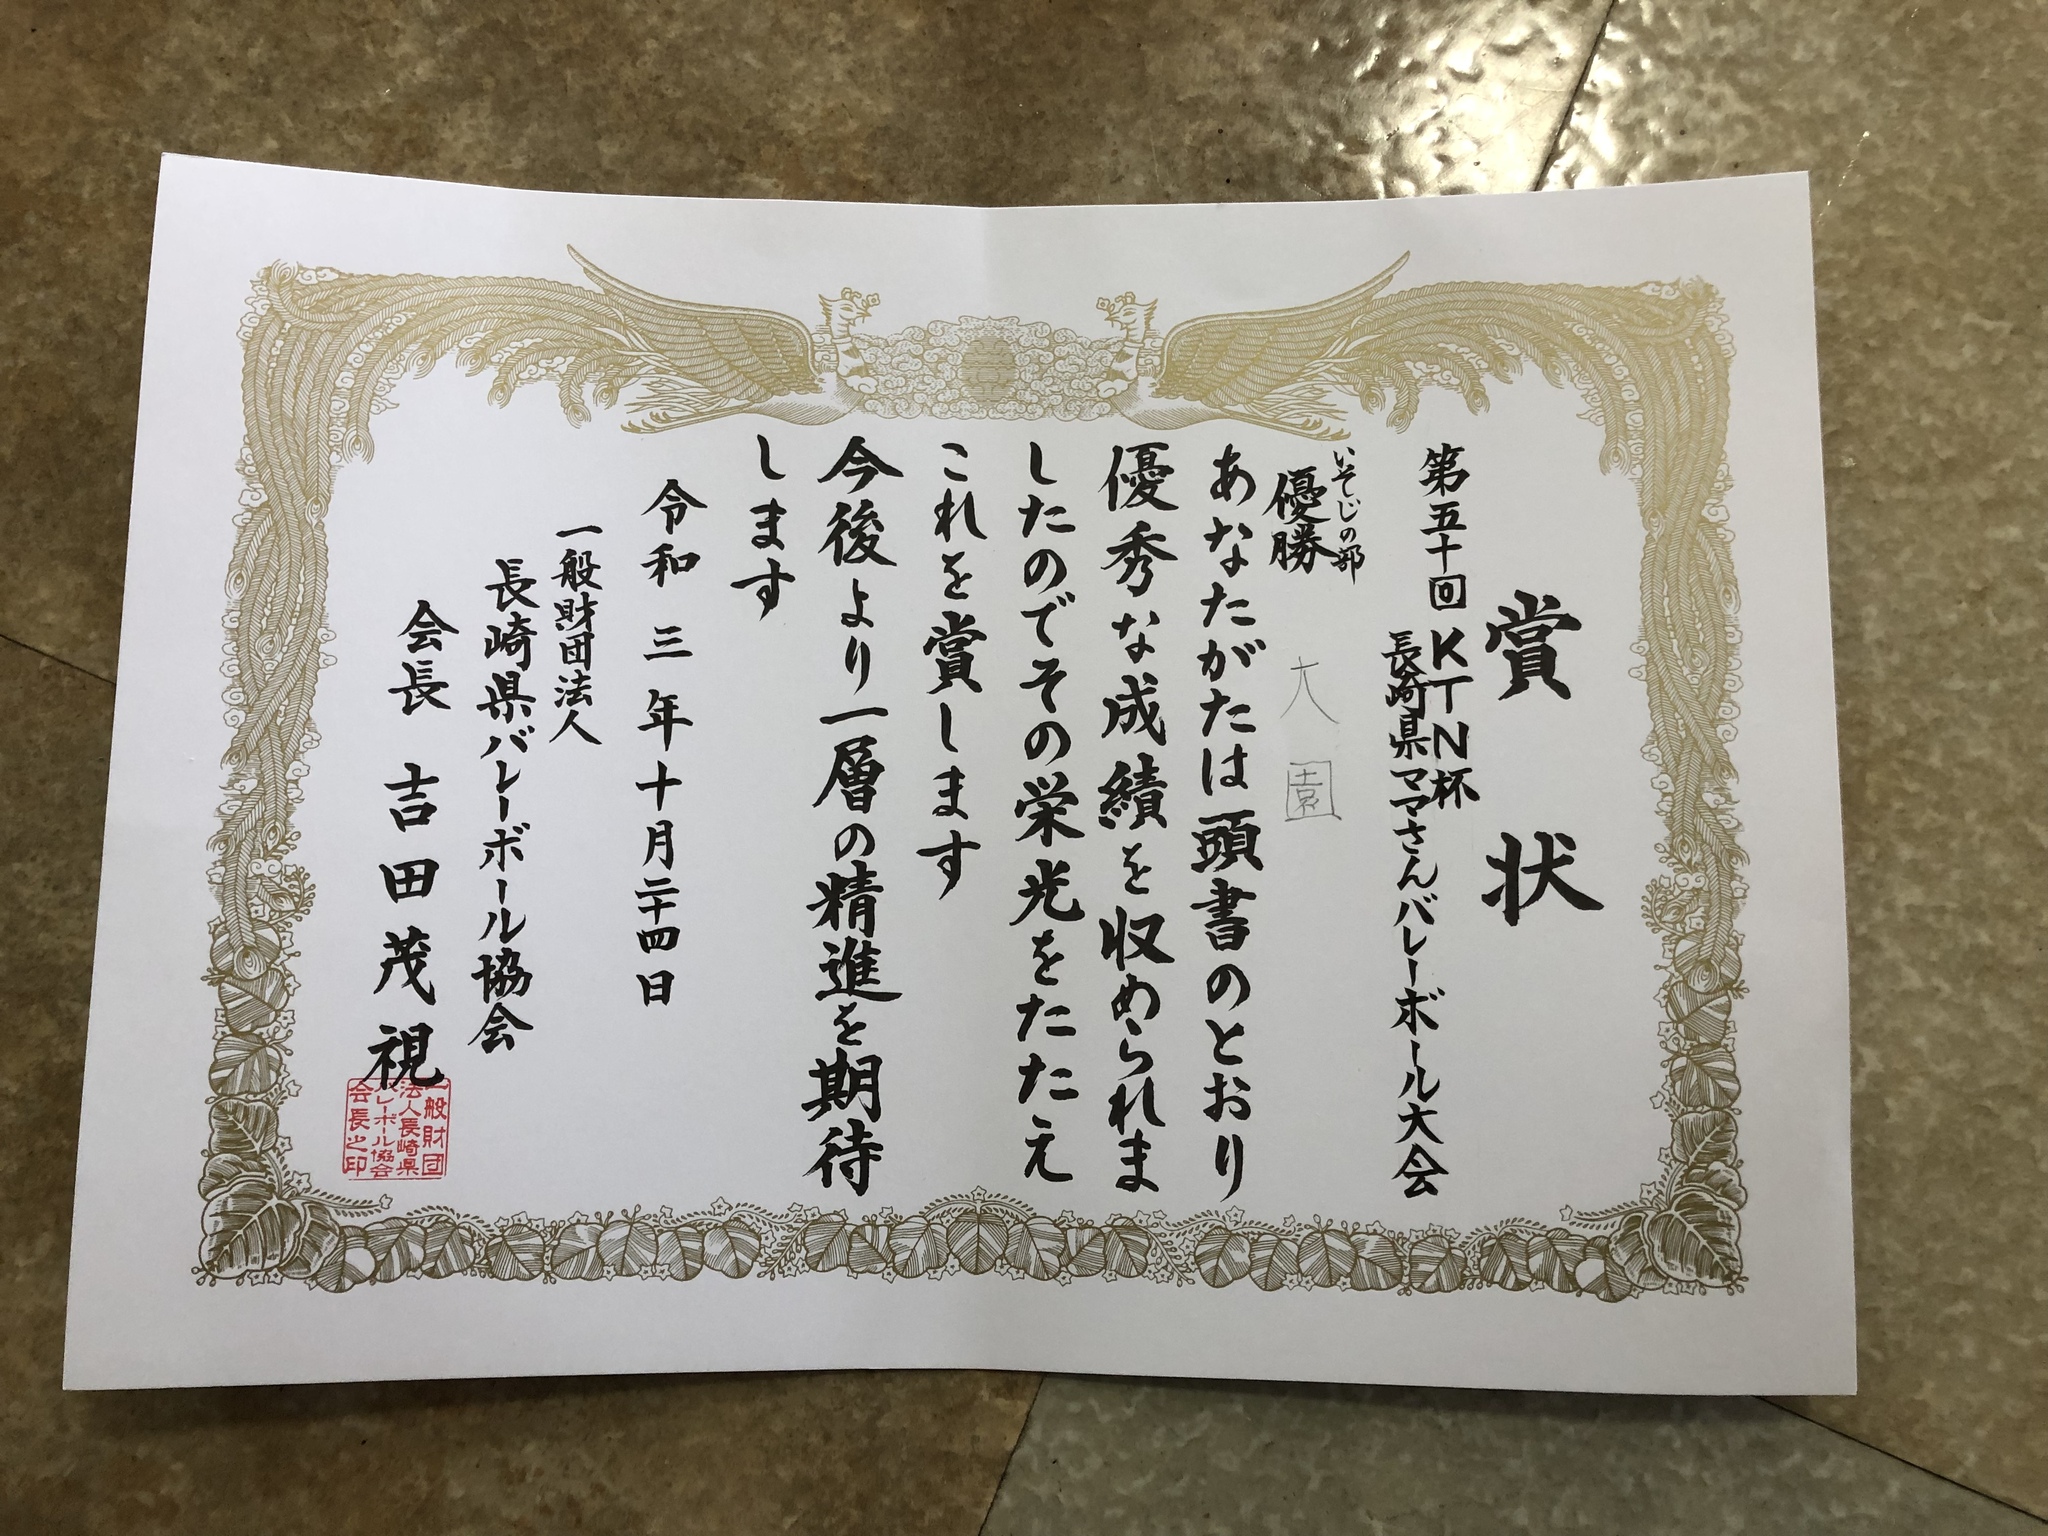 賞状
第五十回 KTN杯
長崎県ママさんバレーボール大会
いそじの部
優勝 大園
あなたがたは頭書のとおり
優秀な成績を収められま
したのでその栄光をたたえ
これを賞します
今後より一層の精進を期待
します
令和三年十月二十四日
一般財団法人
長崎県バレーボール協会
会長 吉田茂視
一般財団
法人長崎県
バレーボール協会
会長之印